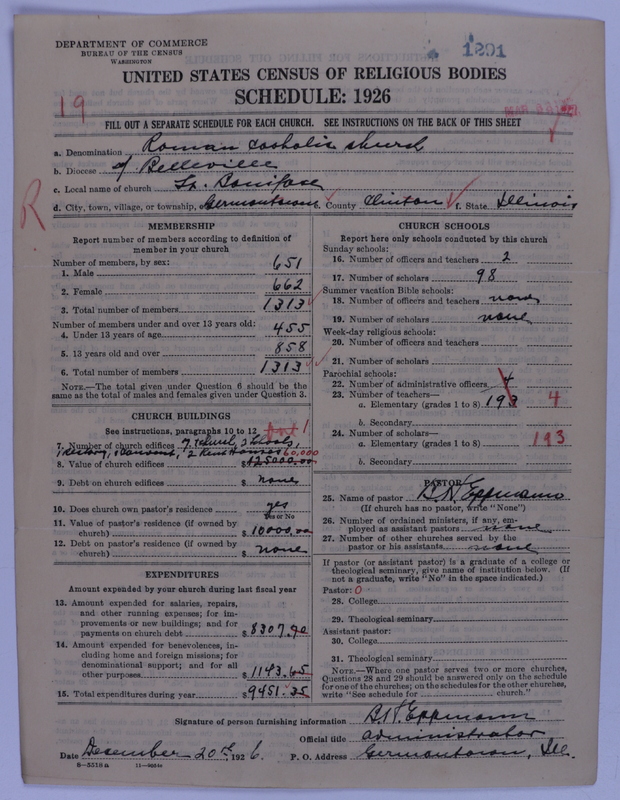 DEPARTMENT OF COMMERCE
BUREAU OF THE CENSUS
WASHINGTON
1291
UNITED STATES CENSUS OF RELIGIOUS BODIES
SCHEDULE: 1926
19
FILL OUT A SEPARATE SCHEDULE FOR EACH CHURCH. SEE INSTRUCTIONS ON THE BACK OF THIS SHEET
a. Denomination Roman Catholic Church
b. Diocese of Belleville
c. Local name of church St. Boniface
d. City, town, village, or township, Germantown e. County Clinton f. State Illinois
R
MEMBERSHIP
Report number of members according to definition of
member in your church
Number of members, by sex:
1. Male 651
2. Female 662
3. Total number of members 1313
Number of members under and over 13 years old:
4. Under 13 years of age 455
5. 13 years old and over 858
6. Total number of members 1313
NOTE.—The total given under Question 6 should be the
same as the total of males and females given under Question 3.
CHURCH BUILDINGS
See instructions, paragraphs 10 to 12 1
7. Number of church edifices 7, 1 church, 2 Schools,
1 Rectory, 1 Convent, 2 Rent Houses 60,000
8. Value of church edifices $125000.00
9. Debt on church edifices $ none
10. Does church own pastor's residence yes
Yes or No
11. Value of pastor's residence (if owned by
church) $10000.00
12. Debt on pastor's residence (if owned by
church) $ none
EXPENDITURES
Amount expended by your church during last fiscal year
13. Amount expended for salaries, repairs,
and other running expenses; for im-
provements or new buildings; and for
payments on church debt $8307.90
14. Amount expended for benevolences, in-
cluding home and foreign missions; for
denominational support; and for all
other purposes $1143.65
15. Total expenditures during year $9451.35
CHURCH SCHOOLS
Report here only schools conducted by this church
Sunday schools:
16. Number of officers and teachers 2
17. Number of scholars 98
Summer vacation Bible schools:
18. Number of officers and teachers none
19. Number of scholars none
Week-day religious schools:
20. Number of officers and teachers
21. Number of scholars
Parochial schools:
22. Number of administrative officers 4
23. Number of teachers—
a. Elementary (grades 1 to 8) 193 4
b. Secondary
24. Number of scholars—
a. Elementary (grades 1 to 8) 193
b. Secondary
PASTOR
25. Name of pastor B.H. Eppmann
(If church has no pastor, write "None")
26. Number of ordained ministers, if any, em-
ployed as assistant pastors none
27. Number of other churches served by the
pastor or his assistants none
If pastor (or assistant pastor) is a graduate of a college or
theological seminary, give name of institution below. (If
not a graduate, write "No" in the space indicated.)
Pastor: O
28. College
29. Theological seminary
Assistant pastor:
30. College
31. Theological seminary
NOTE.—Where one pastor serves two or more churches,
Questions 28 and 29 should be answered only on the schedule
for one of the churches; on the schedules for the other churches,
write "See schedule for church."
Signature of person furnishing information B.H. Eppmann
Official title administrator
Date December 20th, 1926. P. O. Address Germantown, Ill.
8—5518a